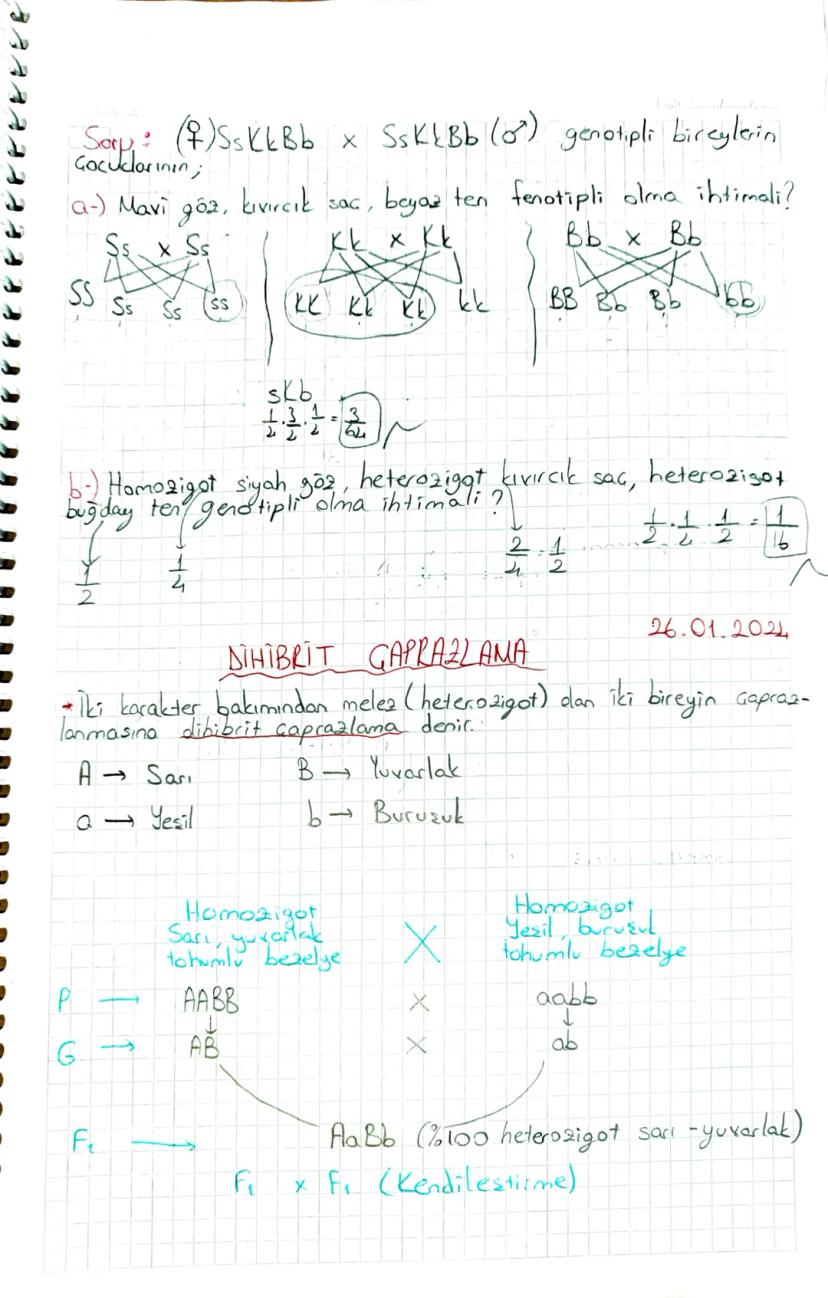 Soru: (♀)SsKkBb x SsKkBb(♂) genotipli bireylerin
çocuklarının;
a-) Mavi göz, kıvırcık saç, beyaz ten fenotipli olma ihtimali?
Ss x Ss Kk x Kk Bb x Bb
SS Ss Ss ss KK Kk Kk kk BB Bb Bb bb
sKb
1/2 . 3/2 . 1/2 = 3/64
b-) Homozigot siyah göz, heterozigot kıvırcık saç, heterozigot
buğday ten genotipli olma ihtimali?
1/2 1/4 2/4 = 1/2 1/2 . 1/4 . 1/2 = 1/16
26.01.2024
DİHİBRİT ÇAPRAZLAMA
* İki karakter bakımından melez (heterozigot) olan iki bireyin çapraz-
lanmasına dihibrit çaprazlama denir.
A → Sarı B → Yuvarlak
a → Yeşil b → Buruşuk
Homozigot Homozigot
Sarı, yuvarlak X Yeşil, buruşuk
tohumlu bezelye tohumlu bezelye
P → AABB x aabb
G → AB x ab
F₁ → AaBb (%100 heterozigot sarı - yuvarlak)
F₁ x F₁ (Kendileştirme)